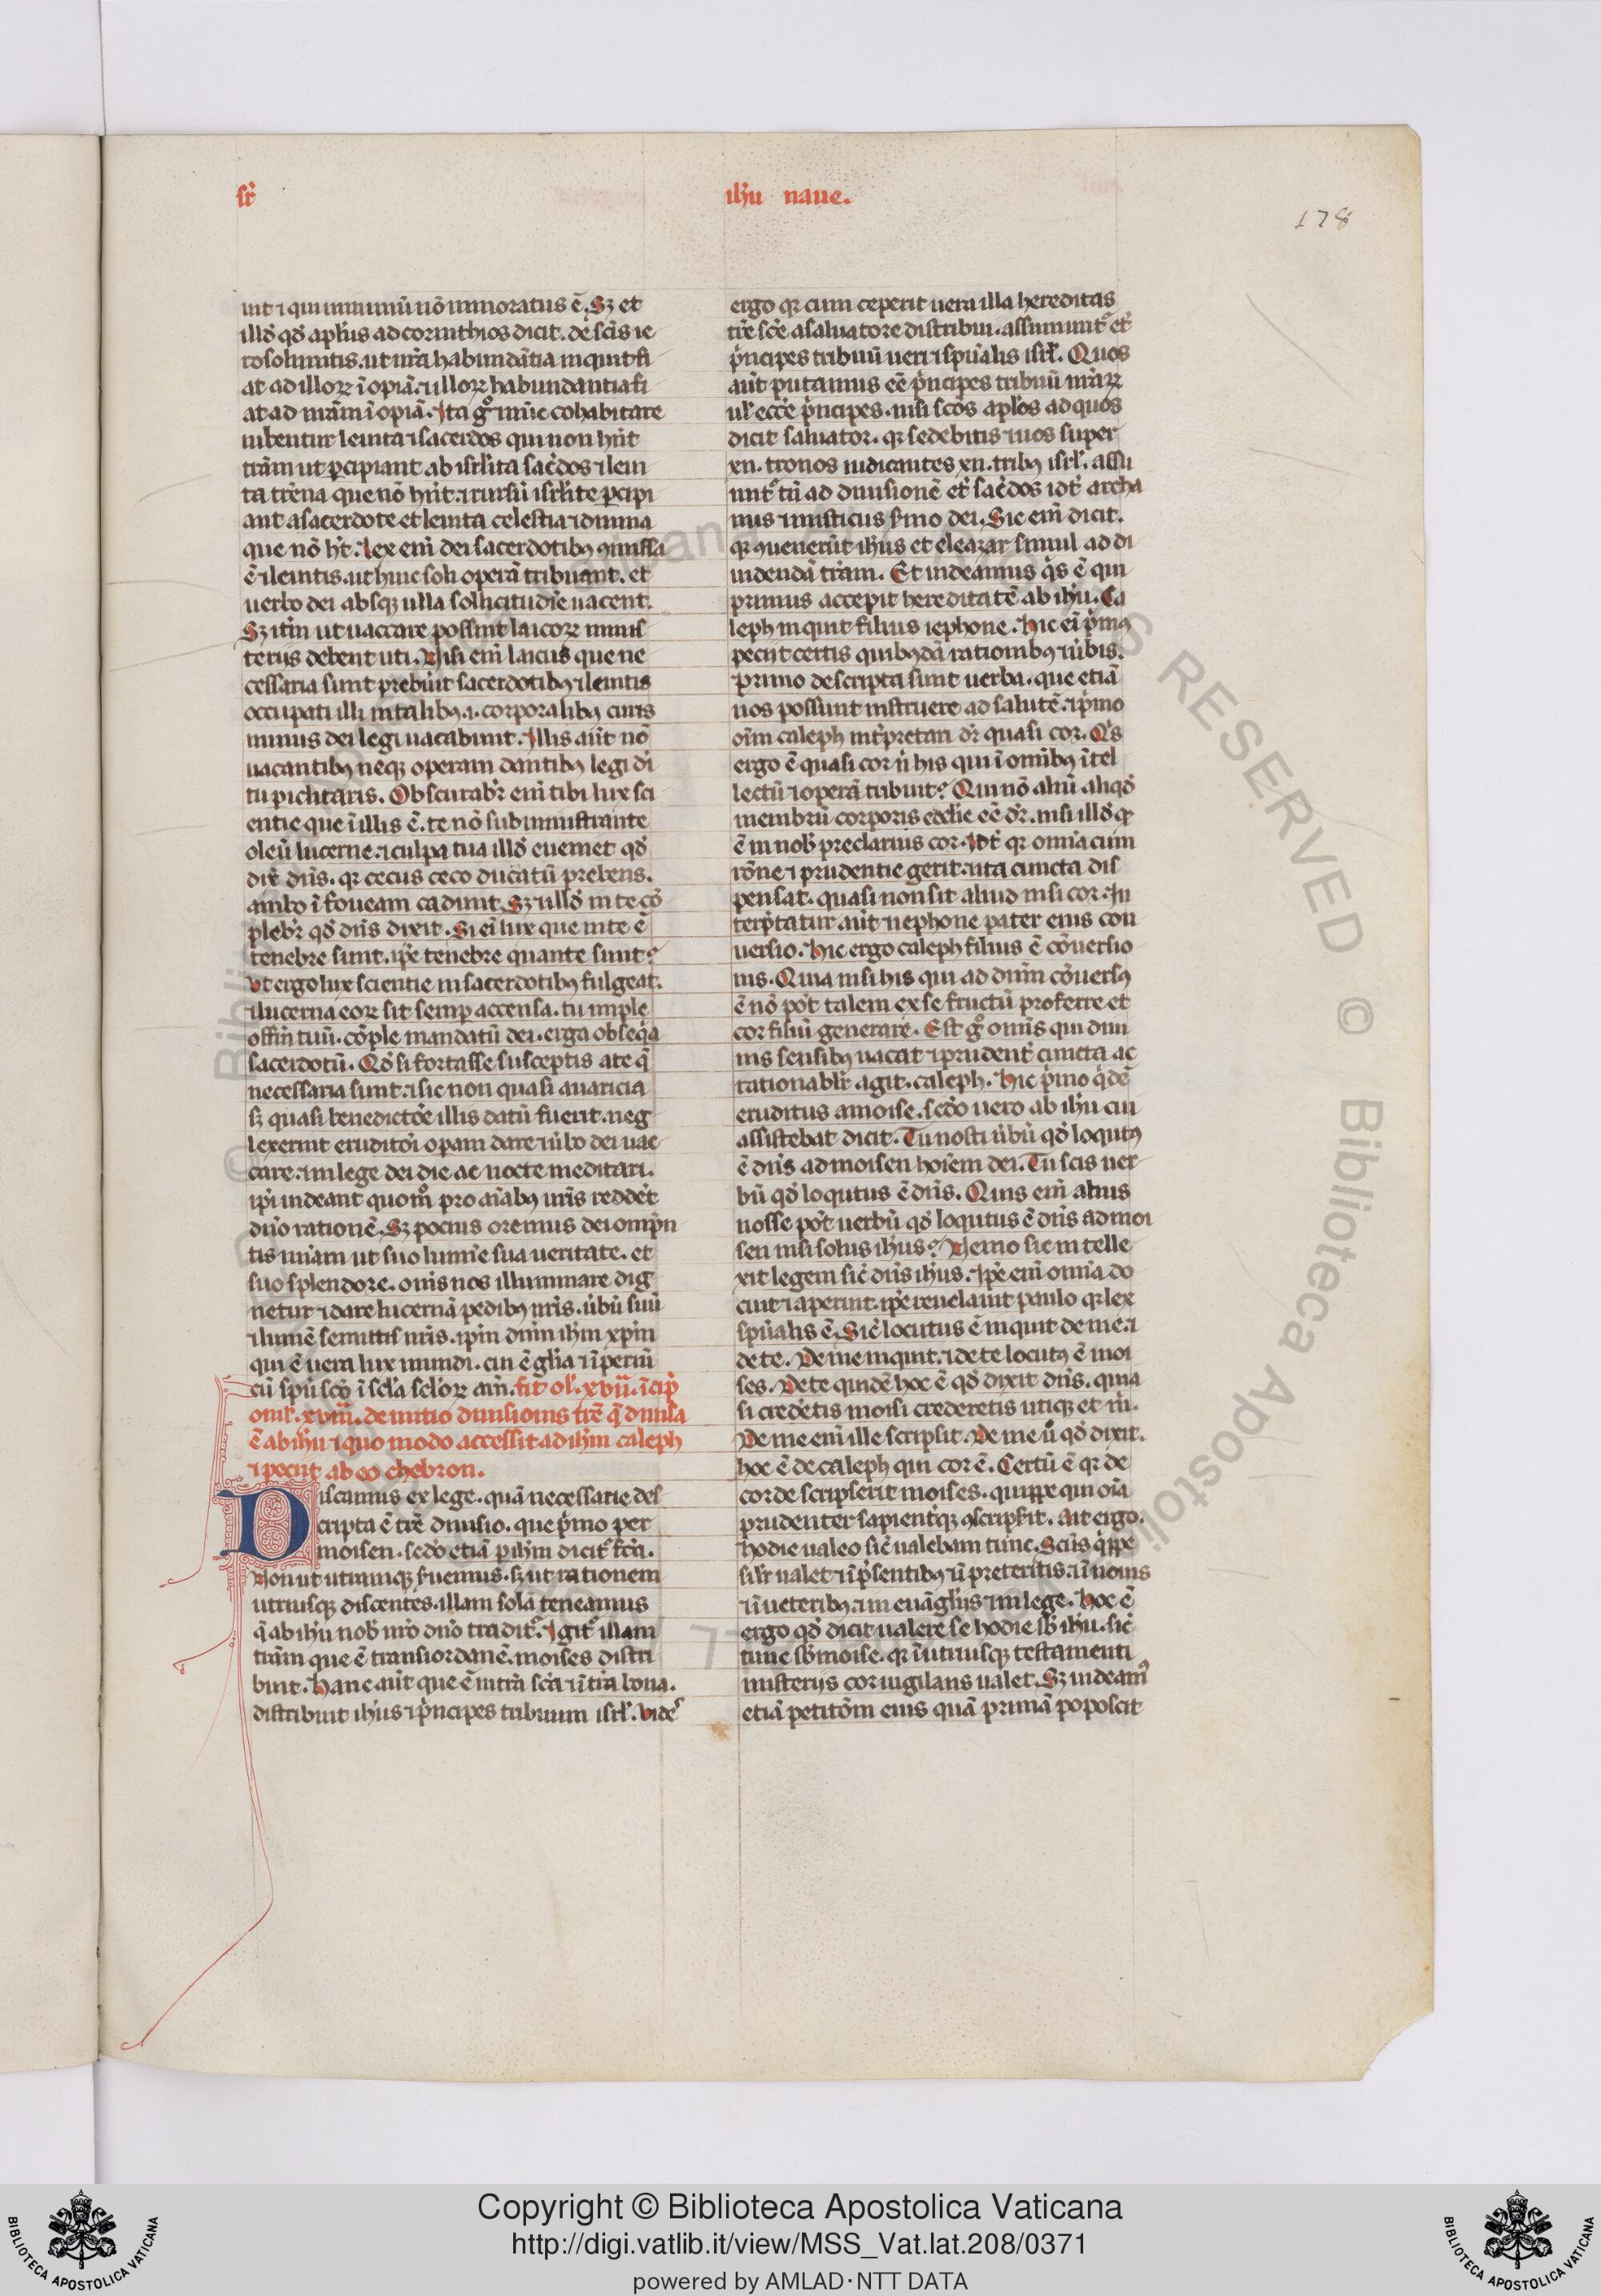 sr̄
ih̄u naue.
178
int ⁊ qui inmunim nō inmoratus ē. Sꝫ et
illd̄ qd̄ apl̄us ad corinthios dicit. de sc̄is ie
rosolimitis. ut ur̄a habundātia inquit fi
at ad illoꝝ īopiā. ⁊ illoꝝ habundantia fi
at ad ur̄am īopiā. Ita gͦ nūc cohabitare
iubentur leuita ⁊ sacerdos qui non hn̄t
tr̄am ut ꝑcipiant ab isrl̄ita sac̄dos ⁊ leui
ta tr̄ena que nō hn̄t. ⁊ rursū isrl̄ite ꝑcipi
ant a sacerdote et leuita celestia ⁊ diuina
que nō hn̄t. lex eni dei sacerdotibꝫ ꝯmissa
ē ⁊ leuitis. ut huic soli operā tribuant. et
uerbo dei absqꝫ ulla sollicitudīe uacent.
Sꝫ itm̄ ut uaccare possint laicoꝝ minis
teriis debent uti. Nisi eni laicus que ne
cessaria sunt prebuit sacerdotibꝫ ⁊ leuitis
occupati illi in talibꝫ .i. corporalibꝫ curis
minus dei legi uacabunt. Illis aūt nō
uacantibꝫ neqꝫ operam dantibꝫ legi di
tu piclitaris. Obscurabr̄ eni tibi lux sci
entie que ī illis ē. te nō subministrante
oleū lucerne. ⁊ culpa tua illd̄ eueniet qd̄
dix̄ dn̄s. qr cecus ceco ducatū prebens.
ambo ī foueam cadunt. Sꝫ ⁊ illd̄ in te cō
plebr̄ qd̄ dn̄s dixit. Si ei lux que in te ē
tenebre sunt. ip̄e tenebre quante sunt?
Vt ergo lux scientie in sacerdotibꝫ fulgeat.
⁊ lucerna eoꝝ sit semꝑ accensa. tu imple
offm̄ tuū. cōple mandatū dei. erga obseq̄a
sacerdotū. Qd̄ si fortasse susceptis a te q̄
necessaria sunt. ⁊ sic non quasi auaricia
sꝫ quasi benedictōe illis datū fuerit. neg
lexerint eruditōi opam dare ⁊ ūbo dei uac
care. ⁊ in lege dei die ac nocte meditari.
ip̄i uideant quom̊ pro aīabꝫ ur̄is reddēt
dn̄o rationē. Sꝫ pocius oremus dei omp̄n
tis miām ut suo lumīe sua ueritate. et
suo splendore. om̄is nos illuminare dig
netur ⁊ dare lucernā pedibꝫ nr̄is. ūbū suū
⁊ lumē semitis nr̄is. ip̄m dn̄m ih̄m xp̄m
qui ē uera lux mundi. cui ē gl̄ia ⁊ īperiū
cū spū sc̄o ī sc̄la sc̄lorꝝ am̄. fīt ol̄. xvii. īcip̄
omel̄. xviii. de initio diuisionis tr̄e q̄ diuisa
ē ab ih̄u ⁊ quo modo accessit ad ih̄m caleph
⁊ peciit ab eo chebron.
Discamus ex lege. quā necessarie des
cripta ē tr̄e diuisio. que p̄mo per
moisen. sed̄o etiā p ih̄m dicit᷑ fc̄a.
Non ut utrūqꝫ seruemus. sꝫ ut rationem
utriusqꝫ discentes. illam solā teneamus
q̄ ab ih̄u nob̄ nr̄o dn̄o tradit᷑. Igit᷑ illam
tr̄am que ē trans iordanē. moises distri
buit. Hanc aūt que ē intra sc̄a ⁊ ī tr̄a bona.
distribuit ih̄us ⁊ p̄ncipes tribuum isrl̄. Vide᷑
ergo qr cum ceperit uera illa hereditas
tr̄e sc̄e a saluatore distribui. assumunt᷑ et
p̄ncipes tribuū ueri ⁊ sp̄ualis isrl̄. Quos
aūt putamus eē p̄ncipes tribuū nr̄aꝝ
ul̄ ecc̄e p̄ncipes. nisi sc̄os apl̄os ad quos
dicit saluator. qr sedebitis ⁊ uos super
xii. tronos iudicantes xii. tribꝫ isrl̄. assu
unt᷑ tn̄ ad diuisionē et sac̄dos id̄t archa
nus ⁊ misticus s̄mo dei. Sic eni dicit.
qr ꝯuenerūt ih̄us et eleazar simul ad di
uidendā tr̄am. Et uideamus q̄s ē qui
primus accepit hereditatē ab ih̄u. Ca
leph inquit filius iephone. Hic ei p̄mꝰ
peciit certis quibꝫdā rationibꝫ ⁊ ūbis.
primo descripta sunt uerba. que etiā
nos possunt instruere ad salutē. ⁊ p̄mo
oīm caleph int̄pretari dr̄ quasi cor. Q̄s
ergo ē quasi cor n̄ his qui ī omībꝫ ītel
lectū ⁊ operā tribuit? Qui nō aliū aliqd̄
membrū corporis eccl̄ie eē dr̄. nisi illd̄ qd̄
ē in nob̄ preclarius cor. Id̄t qr omīa cum
rōne ⁊ prudentie gerit. ⁊ ita cuncta dis
pensat. quasi non sit aliud nisi cor. In
terp̄tatur aūt iephone pater eius con
uersio. Hic ergo caleph filius ē cōuersio
nis. Quia nisi his qui ad dn̄m cōuersꝰ
ē nō pōt talem ex se fructū proferre et
cor filiū generare. Est gͦ om̄is qui diui
nis sensibꝫ uacat ⁊ prudent̄ cuncta ac
rationabl̄r agit. caleph. Hic p̄mo q̄dē
eruditus a moise. sc̄do uero ab ih̄u cui
assistebat dicit. Tu nosti ūbū qd̄ loqutꝰ
ē dn̄s ad moisen hoīem dei. Tu scis uer
bū qd̄ loqutus ē dn̄s. Quis eni alius
nosse pōt uerbū qd̄ loqutus ē dn̄s ad moi
sen nisi solus ih̄us? Nemo sic intelle
xit legem sic̄ dn̄s ih̄us. Ip̄e eni omīa do
cuit ⁊ aperuit. ip̄e reuelauit paulo qr lex
sp̄ualis ē. Sic̄ locutus ē inquit de me. ⁊
de te. De me inquit. ⁊ de te locutꝰ ē moi
ses. De te quidē hoc ē qd̄ dixit dn̄s. quia
si credētis moisi crederetis utiqꝫ et m̄.
De me eni ille scripsit. De me ū qd̄ dixit.
hoc ē de caleph qui cor ē. Certū ē qr de
corde scripserit moises. quippe qui oīa
prudenter sapient̄qꝫ ꝯscripsit. Ait ergo.
hodie ualeo sic̄ ualebam tunc. Sc̄us q̄ppe
sil̄r ualet ⁊ ī p̄sentibꝫ ⁊ ī preteritis. ⁊ ī nouis
⁊ ī ueteribꝫ. ⁊ in euāgliis ⁊ in lege. Hoc ē
ergo qd̄ dicit ualere se hodie sb̄ ih̄u. sic̄
tunc sb̄ moise. qr ī utriusqꝫ testamenti
misteriis cor uigilans ualet. Sꝫ uideamꝰ
etiā petitōm eius quā primā poposcit
Copyright © Biblioteca Apostolica Vaticana
http://digi.vatlib.it/view/MSS_Vat.lat.208/0371
powered by AMLAD·NTT DATA
BIBLIOTECA APOSTOLICA VATICANA
BIBLIOTECA APOSTOLICA VATICANA